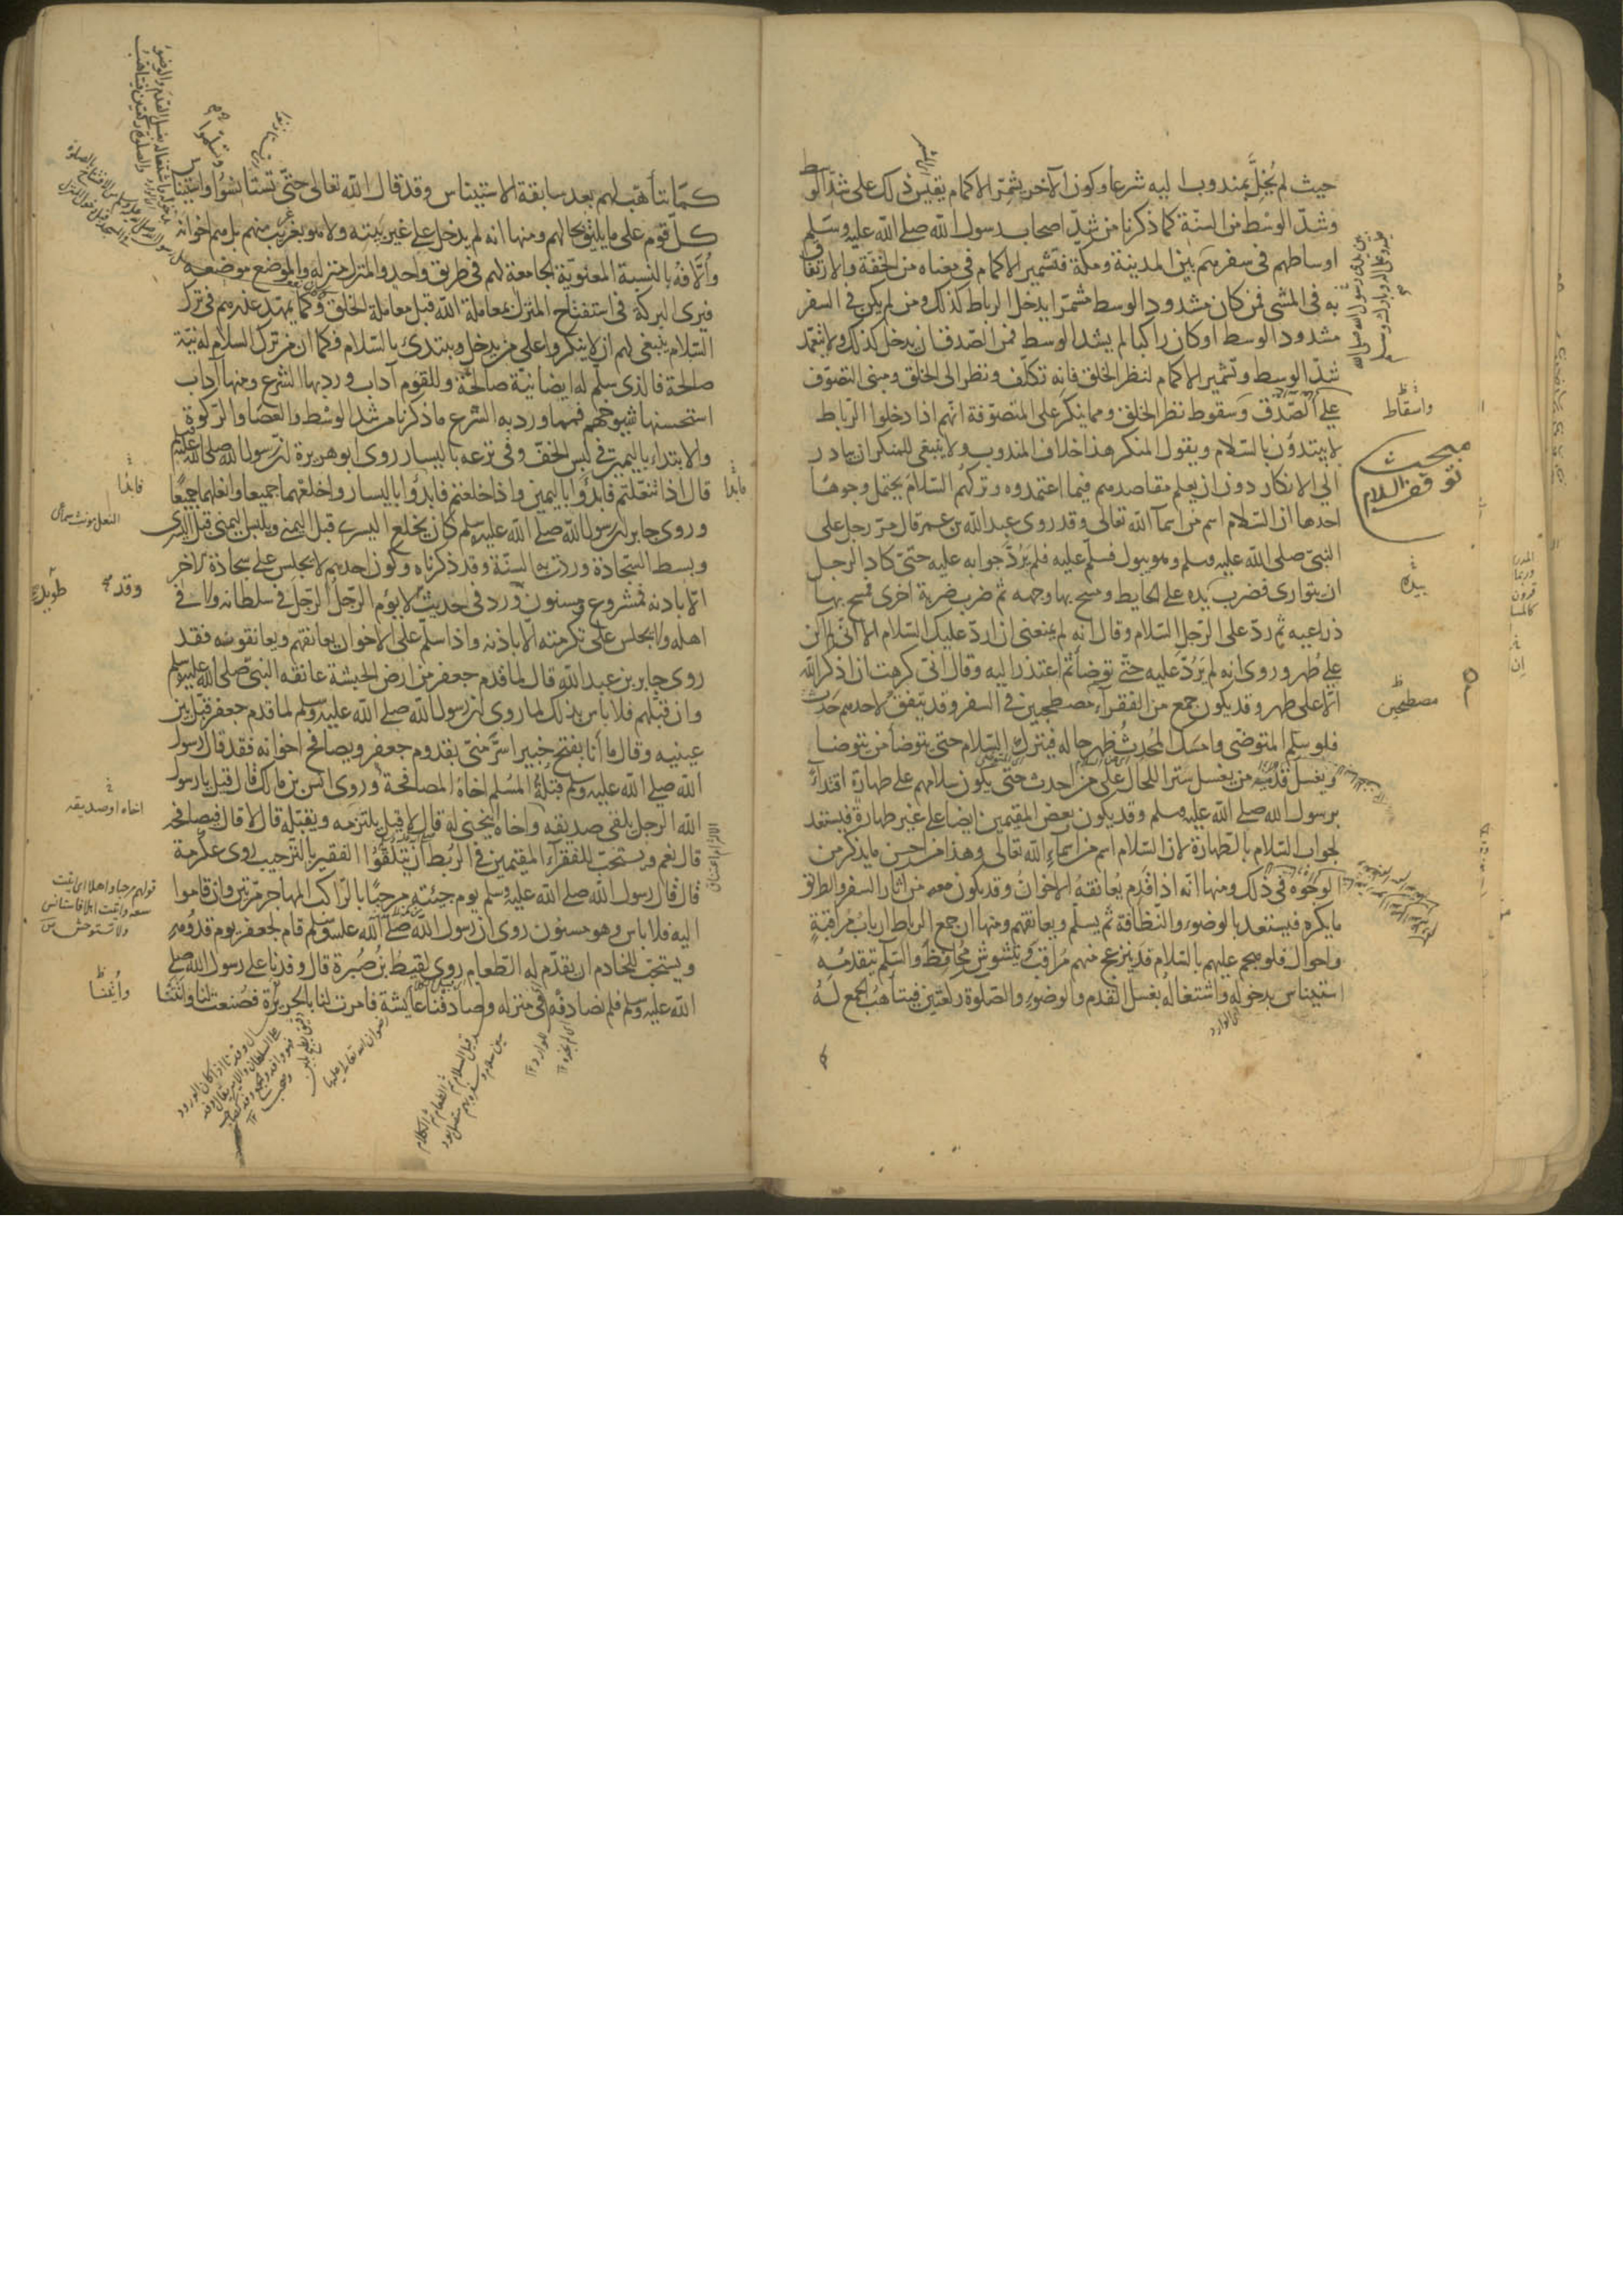 حيث لم يُخِلَّ بمندوب اليه شرعا وكون الآخر يشمّر الاكمام يقيس ذلك على شدّ الوسط
وشدّ الوسط من السنّة كما ذكرنا من شدّ اصحاب رسول الله صلى الله عليه وسلم
اوساطهم فى سفرهم بين المدينة ومكّة فتشمير الاكمام فى معناه من الخفّة والارتفاق
به فى المشى فمن كان مشدود الوسط مشمّرا يدخل الرباط كذلك ومن لم يكن فى السفر
مشدود الوسط او كان راكبا لم يشد الوسط فمن الصّدق ان يدخل كذلك ولا يتعمّد
شدّ الوسط وتشمير الاكمام لنظر الخلق فانه تكلّف ونظر الى الخلق ومبنى التصوّف
على الصّدق وسقوط نظر الخلق ومما ينكر على المتصوّفة انّهم اذا دخلوا الرّباط
لا يبتدؤن بالسّلام ويقول المنكر هذا خلاف المندوب ولا ينبغى للمنكر ان يبادر
الى الانكار دون ان يعلم مقاصدهم فيما اعتمدوه وتركهم السّلام يحتمل وجوها
احدها ان السّلام اسم من اسمآ الله تعالى وقد روى عبد الله بن عمر قال مرّ رجل على
النبىّ صلى الله عليه وسلم وهو يبول فسلّم عليه فلم يَرُدَّ جوابه عليه حتىّ كاد الرجل
ان يتوارى فضرب يده على الحايط ومسح بها وجهه ثم ضرب ضربة اخرى فمسح بها
ذراعيه ثم ردّ على الرّجل السّلام وقال انه لم يمنعنى ان اردّ عليك السّلام الا انّى لم اكن
على طهر وروى انه لم يَرُدّ عليه حتّى توضأ ثم اعتذر اليه وقال انّى كرهت ان اذكر الله
الّا على طهر وقد يكون جمع من الفقرآء مصطحبين فى السفر وقد يتفق لاحدهم حَدَث
فلو سلّم المتوضى وامسك المُحدِث ظهر حاله فيترك السّلام حتى يتوضأ من يتوضا
ويغسل قدَمَيه من يغسل سترا للحال على من احدث حتّى يكون سلامهم على طهارة اقتداءً
برسول الله صلى الله عليه وسلم وقد يكون بعض المقيمين ايضا على غير طهارة فيستعد
لجواب السّلام بالطّهارة لان السّلام اسم من اسماء الله تعالى وهذا من احسن ما يذكر من
الوجوه فى ذلك ومنها انّه اذا قدم يُعانقهُ الاخوانُ وقد يكون معه من آثار السفر والطريق
ما يكره فيستعد بالوضوء والنّظافة ثم يسلّم ويعانقهم ومنها ان جمع الرباط ارباب مُراقبةٍ
واحوال فلو هجم عليهم بالسّلام قد ينزعج منهم مُراقب ويتشوش مُحافظ والسّلم يتقدمه
استيناس بدخوله واشتغاله بغسل القدم والوضوء والصّلوة ركعتين فيتأهبُ الجمع لهُ
واسقاط
مبحث
توقف السلام
بيده
مصطحبين
كما يتأهّب لهم بعد سابقة الاستيناس وقد قال الله تعالى حتّى تستأنسوُا واستيناس
كلّ قوم على ما يليق بحالهم ومنها انه لم يدخل على غير بَيته ولا هو بغريب منهم بل هم اخوانه
وأُلّافهُ بالنسبة المعنويّة الجامعة لهم فى طريق واحد والمنزل منزله والموضع موضعه
فيرى البركة فى استفتاح المنزل بمعاملة الله قبل معاملة الخلق وكما يمهّد عذرهم فى ترك
السّلام ينبغى لهم ان لا ينكروا على من يدخل ويبتدئ بالسّلام فكما ان من ترك السلام له نيّة
صالحة فالذى سلّم له ايضا نيّة صالحة وللقوم آداب ورد بها الشرع ومنها آداب
استحسنها شيوخهم فمما ورد به الشرع ما ذكرنا من شد الوسْط والعصا والرّكوة
والابتداء باليمين فى لبس الخفّ وفى نزعه باليسار روى ابو هريرة ان رسول الله صلى الله عليه وسلم
قال اذا تنعّلتم فابدؤا باليمين واذا خلعتم فابدؤا باليسار واخلعهما جميعا وانعلهما جميعًا
وروى جابر ان رسول الله صلّى الله عليه وسلم كان يخلع اليسرى قبل اليمنى ويلبس اليمنى قبل اليسرى
وبسط السّجادة وردت به السنّة وقد ذكرناه وكون احدهم لا يجلس على سجّادة الآخر
الّا باذنه مشروع ومسنون ورد فى حديث لا يؤم الرّجلُ الرّجلَ فى سلطانه ولا فى
اهله ولا يجلس على تكرمته الّا باذنه واذا سلّم على الاخوان يعانقهم ويعانقونه فقد
روى جابر بن عبد الله قال لما قدم جعفر من ارض الحبشة عانقه النبىّ صلى الله عليه وسلم
وان قبّلهم فلا باس بذلك لما روى ان رسول الله صلى الله عليه وسلم لما قدم جعفر قبّل بين
عينيه وقال ما أنا بفتح خيبر اسَرَّ منّى بقدوم جعفر ويصافح اخوانه فقد قال رسول
الله صلى الله عليه وسلم قبلةُ المُسْلم اخاهُ المصافحة وروى انس بن مالك قال قيل يا رسول
الله الرّجل يلقى صديقه واخاه ينحنى له قال لا قيل يلتزمه ويقبّله قال لا قال فيصافحه
قال نعم ويستحبّ للفقرآء المقيمين فى الربط ان يتلقّوُا الفقير بالترحيب روى عكرمة
قال قال رسول الله صلى الله عليه وسلم يوم جئته مرحبًا بالرّاكب المهاجر مرّتين وان قاموا
اليه فلا باس وهو مسنون روى ان رسول الله صلى الله عليه وسلم قام لجعفر يوم قدومه
ويستحبّ للخادم ان يقدّم له الطّعام روى لقيط بن صَبرة قال وفدنا على رسول الله صلى
الله عليه وسلم فلم نصادفه فى منزله وصادفنا عايشة فامرت لنا بالحريرة فصُنعت لنا واتتنا
فابدا
وقد
طويل
اخاه او صديقه
قولهم مرحبا واهلا اى اتيت
سعة واتيت اهلا فاستانس
ولا تستوحش